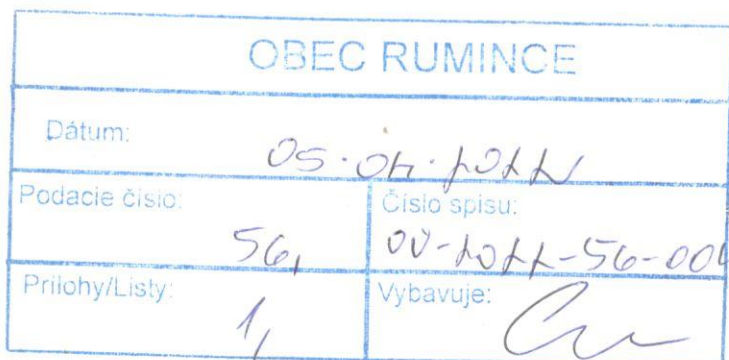 OBEC RUMINCE
Dátum:
05.04.2022
Podacie číslo:
56,
Číslo spisu:
OU-2022-56-004
Prílohy/Listy:
1,
Vybavuje: